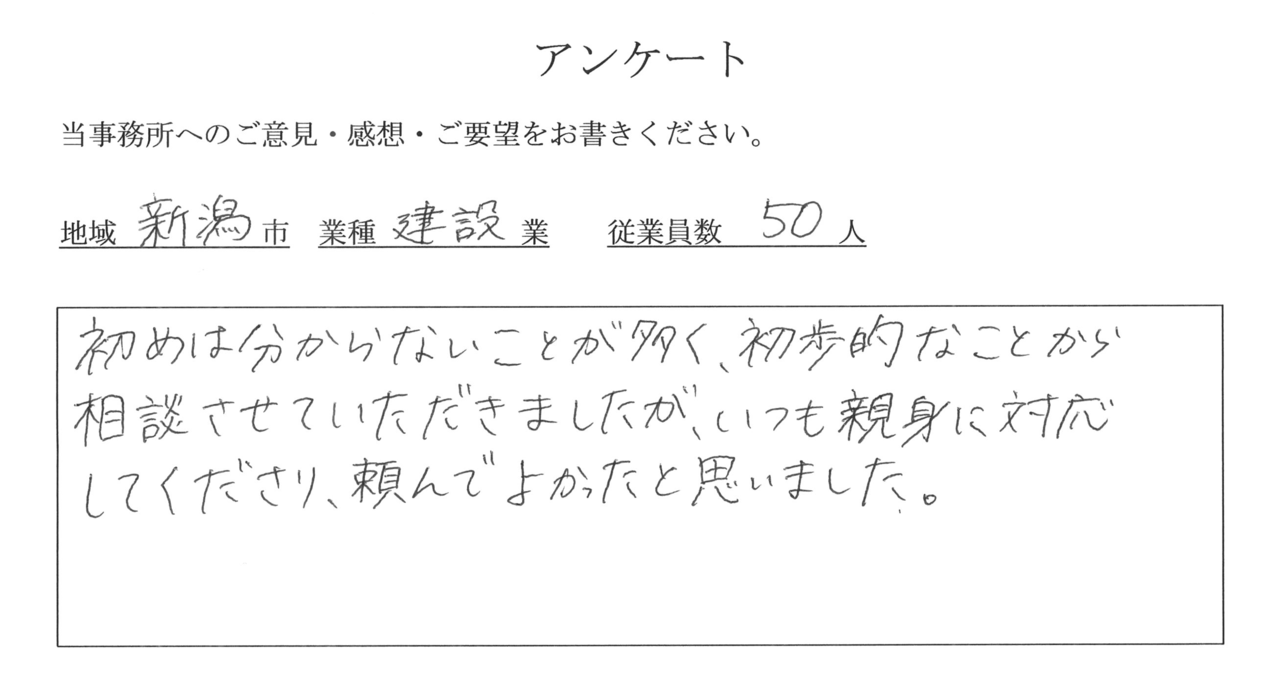 アンケート
当事務所へのご意見・感想・ご要望をお書きください。
地域 新潟 市 業種 建設 業 従業員数 50 人
初めは分からないことが多く、初歩的なことから
相談させていただきましたが、いつも親身に対応
してくださり、頼んでよかったと思いました。